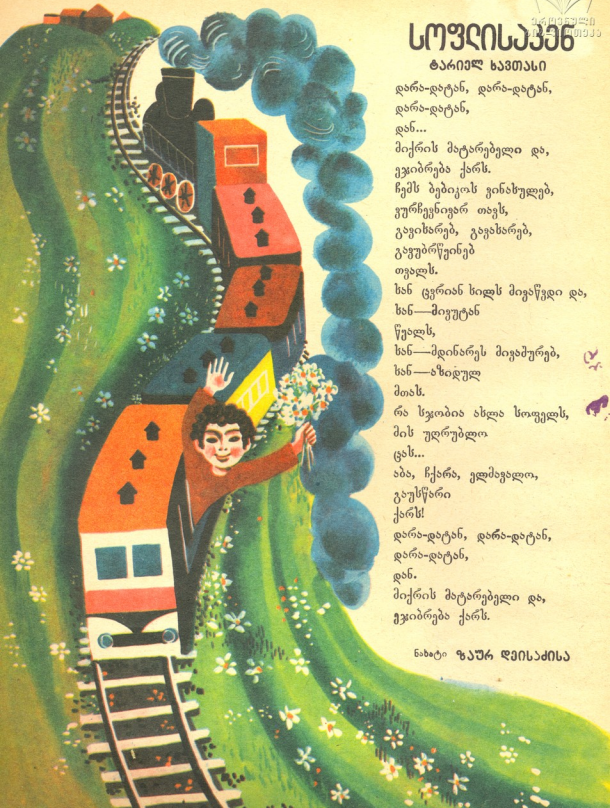 ეროვნული
ბიბლიოთეკა
სოფლისაკენ
ტარიელ ხავთასი
დარა-დატან, დარა-დატან,
დარა-დატან,
დან...
მიქრის მატარებელი და,
ეჯიბრება ქარს.
ჩემს ბებიკოს ვინახულებ,
ვურჩევნივარ თავს,
გავიხარებ, გავახარებ,
გავუბრწყინებ
თვალს.
ხან ცვრიან სილს მივაწვდი და,
ხან—მივუტან
წყალს,
ხან—მდინარეს მივაშურებ,
ხან—აზიდულ
მთას.
რა სჯობია ახლა სოფელს,
მის უღრუბლო
ცას...
აბა, ჩქარა, ელმავალო,
გაუსწარი
ქარს!
დარა-დატან, დარა-დატან,
დარა-დატან,
დან.
მიქრის მატარებელი და,
ეჯიბრება ქარს.
ნახატი ზაურ დეისაძისა